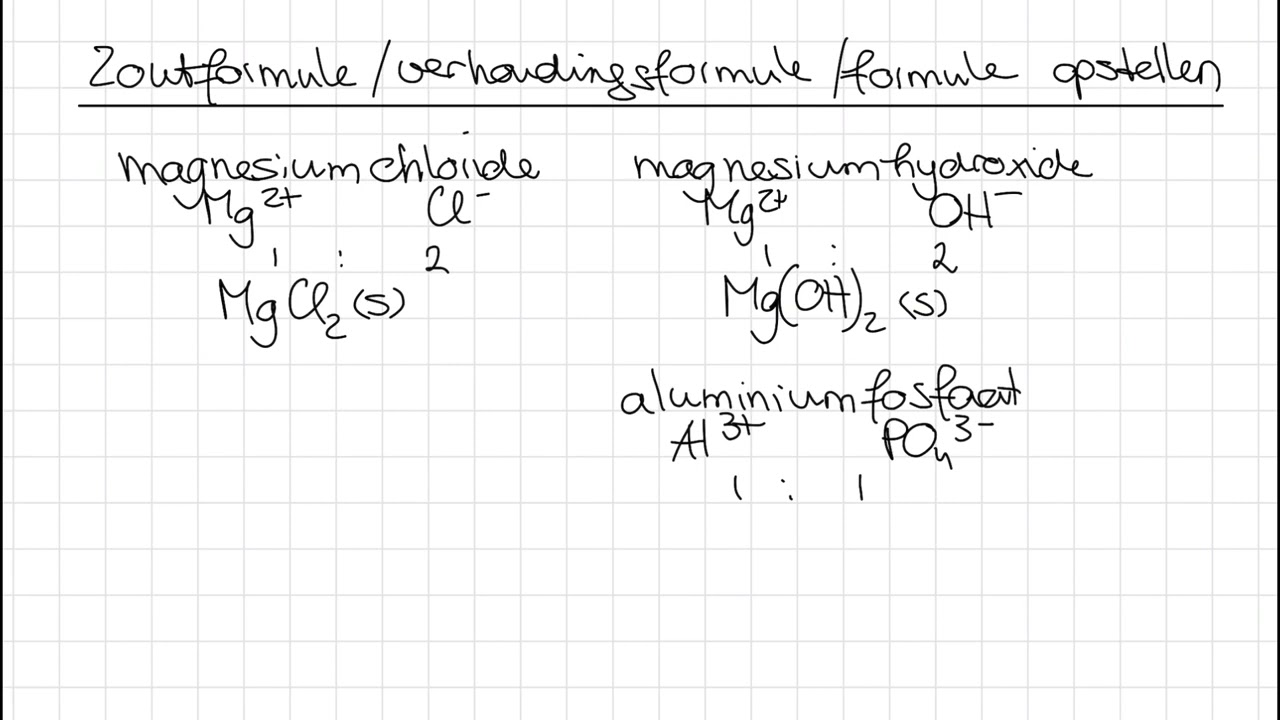 Zoutformule / verhoudingsformule / formule opstellen
magnesiumchloride
Mg²⁺ Cl⁻
1 : 2
MgCl₂(s)
magnesiumhydroxide
Mg²⁺ OH⁻
1 : 2
Mg(OH)₂ (s)
aluminiumfosfaat
Al³⁺ PO₄³⁻
1 : 1